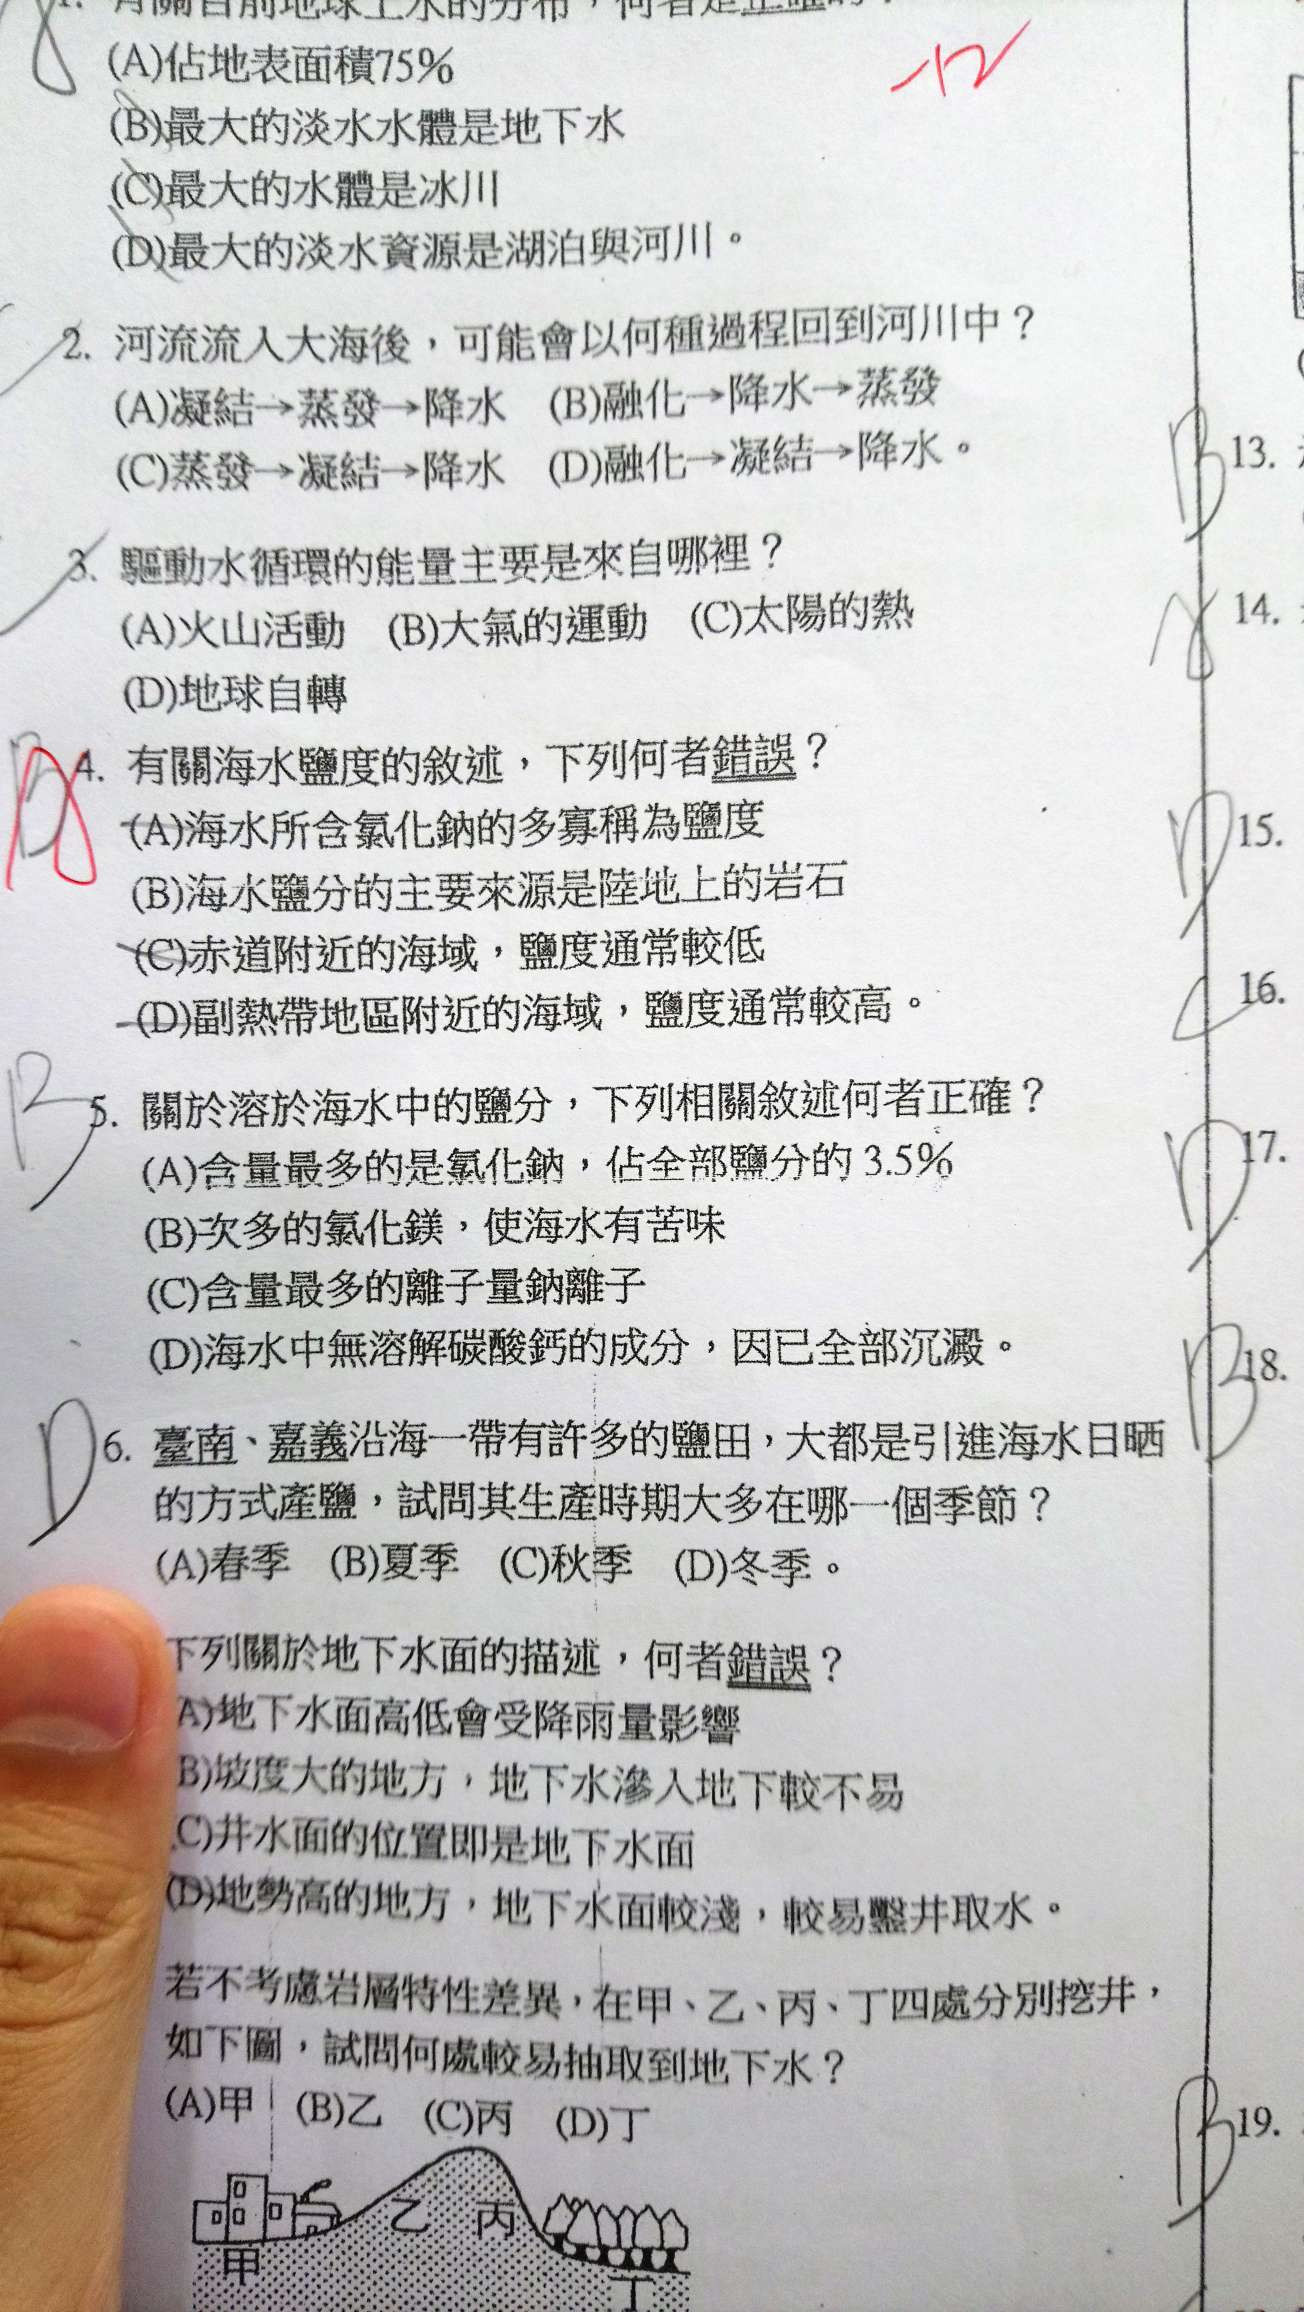 1. 有關目前地球上水的分布，何者是正確的？
(A)佔地表面積75%
(B)最大的淡水水體是地下水
(C)最大的水體是冰川
(D)最大的淡水資源是湖泊與河川。
-12
2. 河流流入大海後，可能會以何種過程回到河川中？
(A)凝結→蒸發→降水 (B)融化→降水→蒸發
(C)蒸發→凝結→降水 (D)融化→凝結→降水。
3. 驅動水循環的能量主要是來自哪裡？
(A)火山活動 (B)大氣的運動 (C)太陽的熱
(D)地球自轉
4. 有關海水鹽度的敘述，下列何者錯誤？
(A)海水所含氯化鈉的多寡稱為鹽度
(B)海水鹽分的主要來源是陸地上的岩石
(C)赤道附近的海域，鹽度通常較低
(D)副熱帶地區附近的海域，鹽度通常較高。
B 5. 關於溶於海水中的鹽分，下列相關敘述何者正確？
(A)含量最多的是氯化鈉，佔全部鹽分的 3.5%
(B)次多的氯化鎂，使海水有苦味
(C)含量最多的離子量鈉離子
(D)海水中無溶解碳酸鈣的成分，因已全部沉澱。
D 6. 臺南、嘉義沿海一帶有許多的鹽田，大都是引進海水日晒
的方式產鹽，試問其生產時期大多在哪一個季節？
(A)春季 (B)夏季 (C)秋季 (D)冬季。
下列關於地下水面的描述，何者錯誤？
A)地下水面高低會受降雨量影響
B)坡度大的地方，地下水滲入地下較不易
C)井水面的位置即是地下水面
(D)地勢高的地方，地下水面較淺，較易鑿井取水。
若不考慮岩層特性差異，在甲、乙、丙、丁四處分別挖井，
如下圖，試問何處較易抽取到地下水？
(A)甲 (B)乙 (C)丙 (D)丁
乙 丙
甲
丁
B 13.
14.
D 15.
C 16.
D 17.
B 18.
B 19.